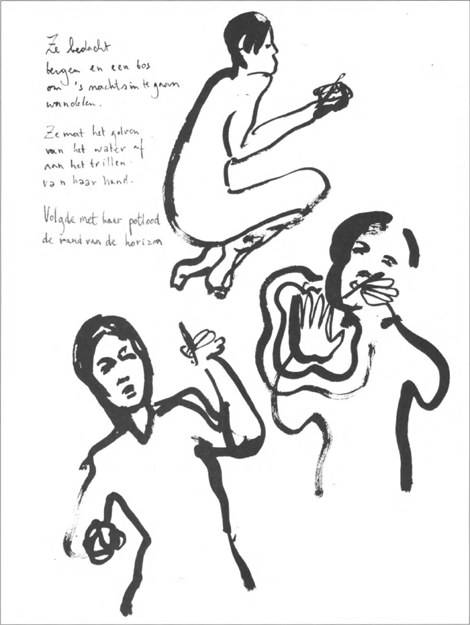 Ze bedacht
bergen en een bos
om 's nachts in te gaan
wandelen.
Ze meet het golven
van het water af
aan het trillen
van haar hand.
Volgde met haar potlood
de rand van de horizon